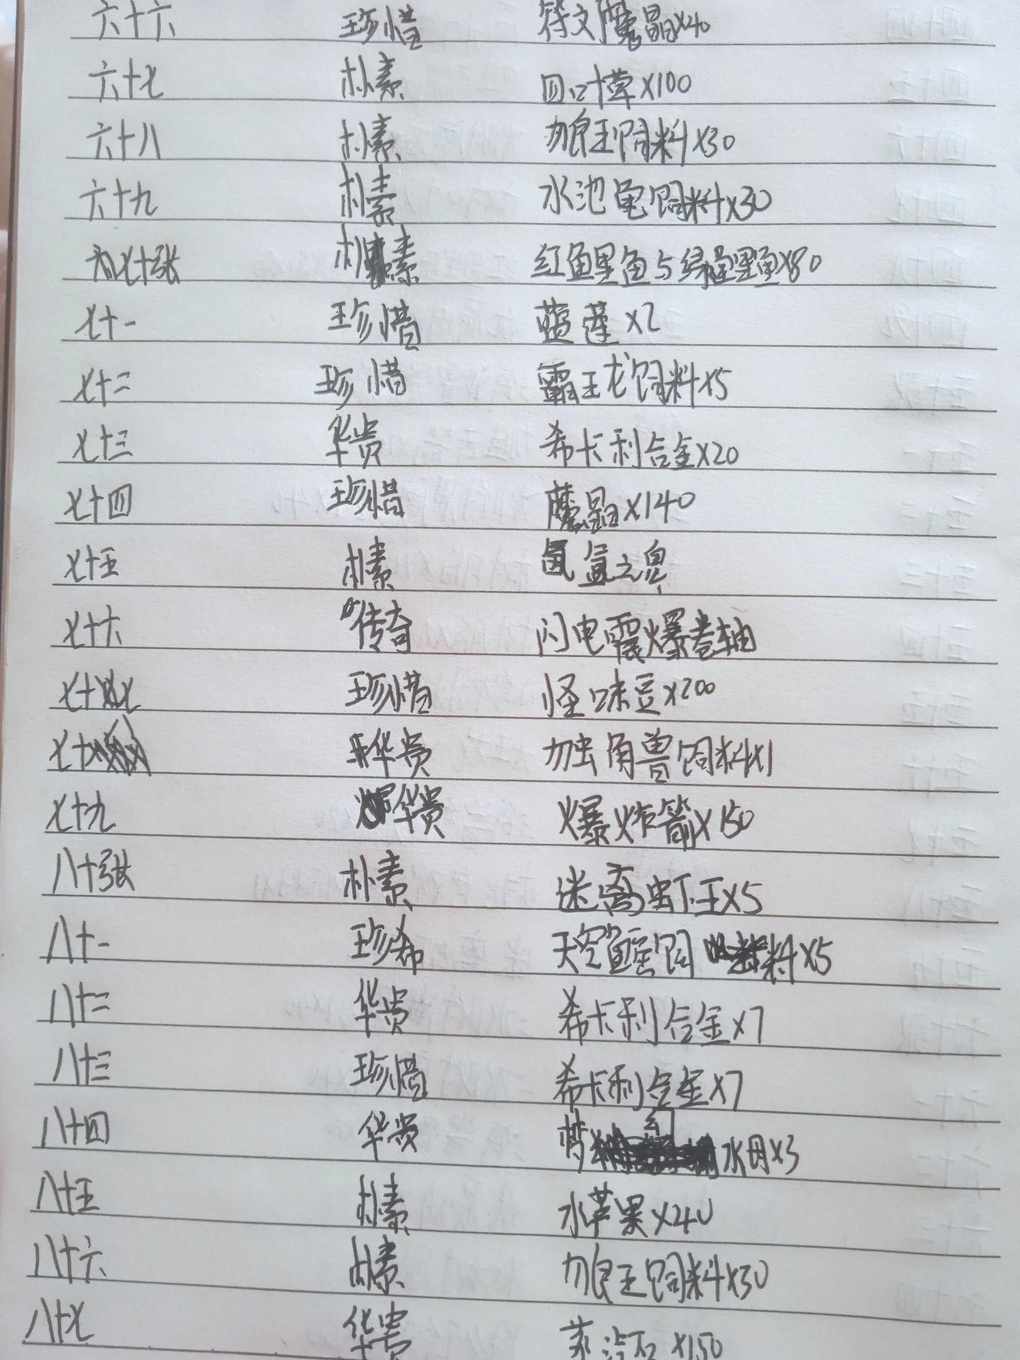 六十六 珍惜 符文魔晶x40
六十七 朴素 四叶草x100
六十八 朴素 狼王饲料x30
六十九 朴素 水池龟饲料x30
七十张 朴素 红鱼里鱼与绿鱼里鱼x80
七十一 珍惜 蓝莲x2
七十二 珍惜 霸王龙饲料x5
七十三 华贵 希卡利合金x20
七十四 珍惜 魔晶x140
七十五 朴素 之息
七十六 传奇 闪电震爆卷轴
七十 珍惜 怪味豆x200
七十 华贵 角兽饲料x1
七十九 华贵 爆炸箭x150
八十张 朴素 迷离虾王x5
八十一 珍希 天空鲨饲料x5
八十二 华贵 希卡利合金x7
八十三 珍惜 希卡利合金x7
八十四 华贵 梦幻水母x3
八十五 朴素 水苹果x40
八十六 朴素 狼王饲料x30
八十七 华贵 蒸汽石x150